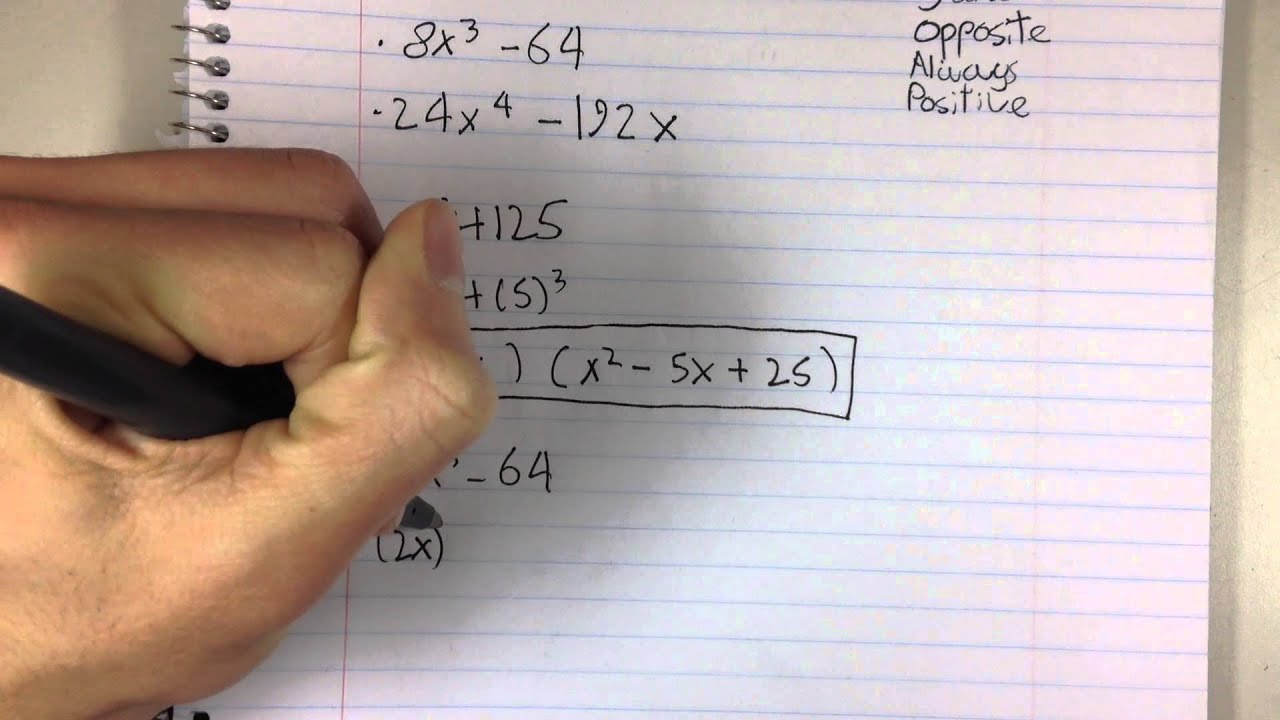 · 8x³ - 64
· 24x⁴ - 192x
+125
+ (5)³
) (x² - 5x + 25)
- 64
(2x)
Opposite
Always
Positive